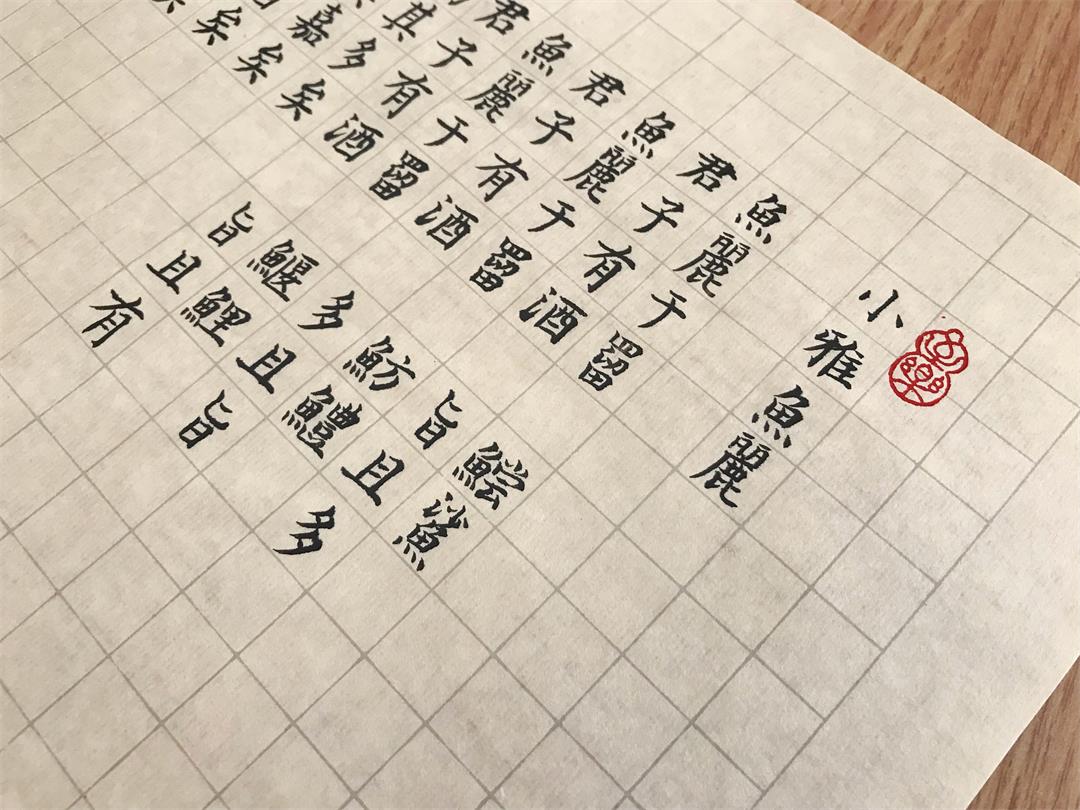 小雅魚麗
魚麗于罶 鱨鯊
君子有酒 旨且多
魚麗于罶 魴鱧
君子有酒 多且旨
魚麗于罶 鰋鯉
君子有酒 旨且有
其多矣
嘉矣
矣